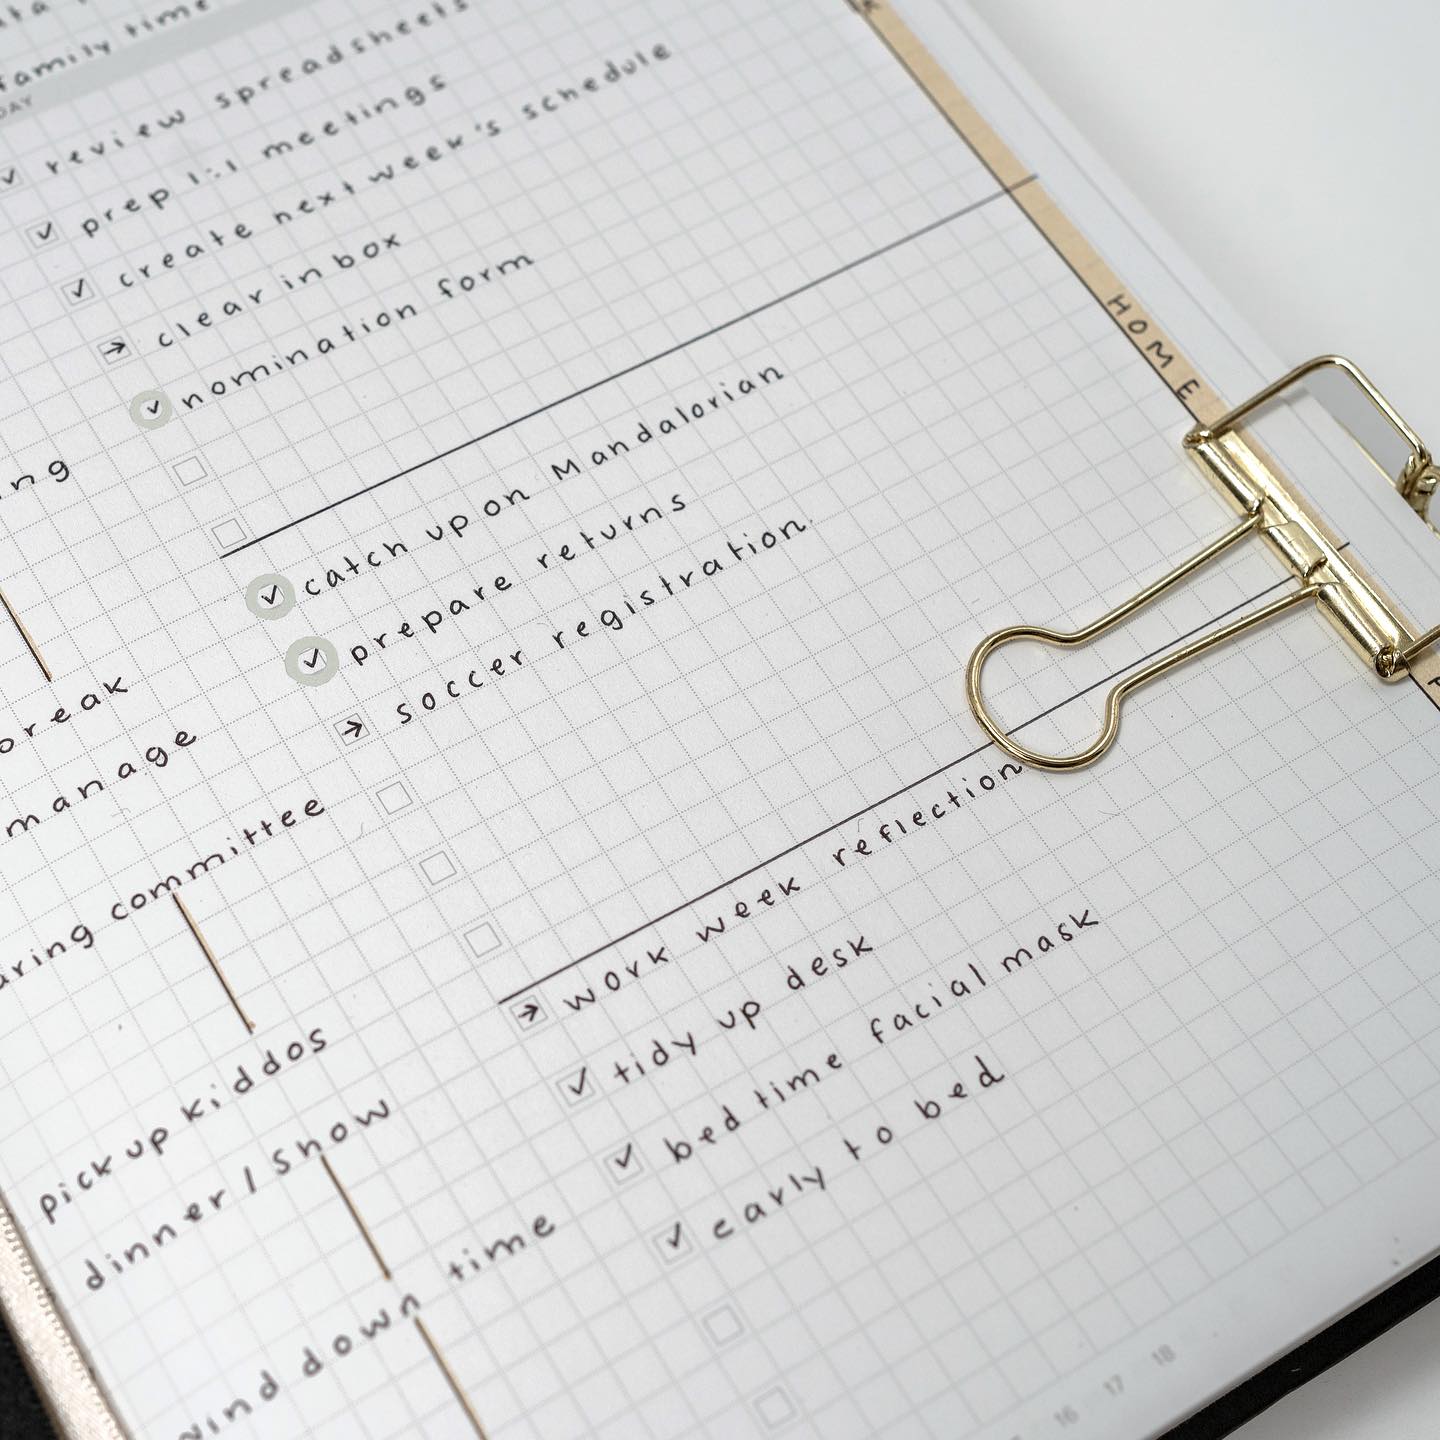 family time
DAY
review spreadsheets
prep 1:1 meetings
create next week's schedule
clear inbox
nomination form
HOME
catch up on Mandalorian
prepare returns
soccer registration
manage
committee
pick up kiddos
dinner / show
wind down time
work week reflection
tidy up desk
bed time facial mask
early to bed
16 17 18